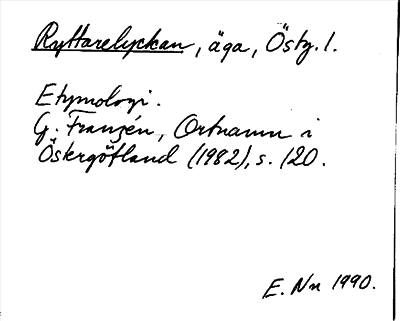 Ryttarelyckan, äga, Östg. l.
Etymologi.
G. Franzén, Ortnamn i
Östergötland (1982), s. 120.
E. Nn 1990.